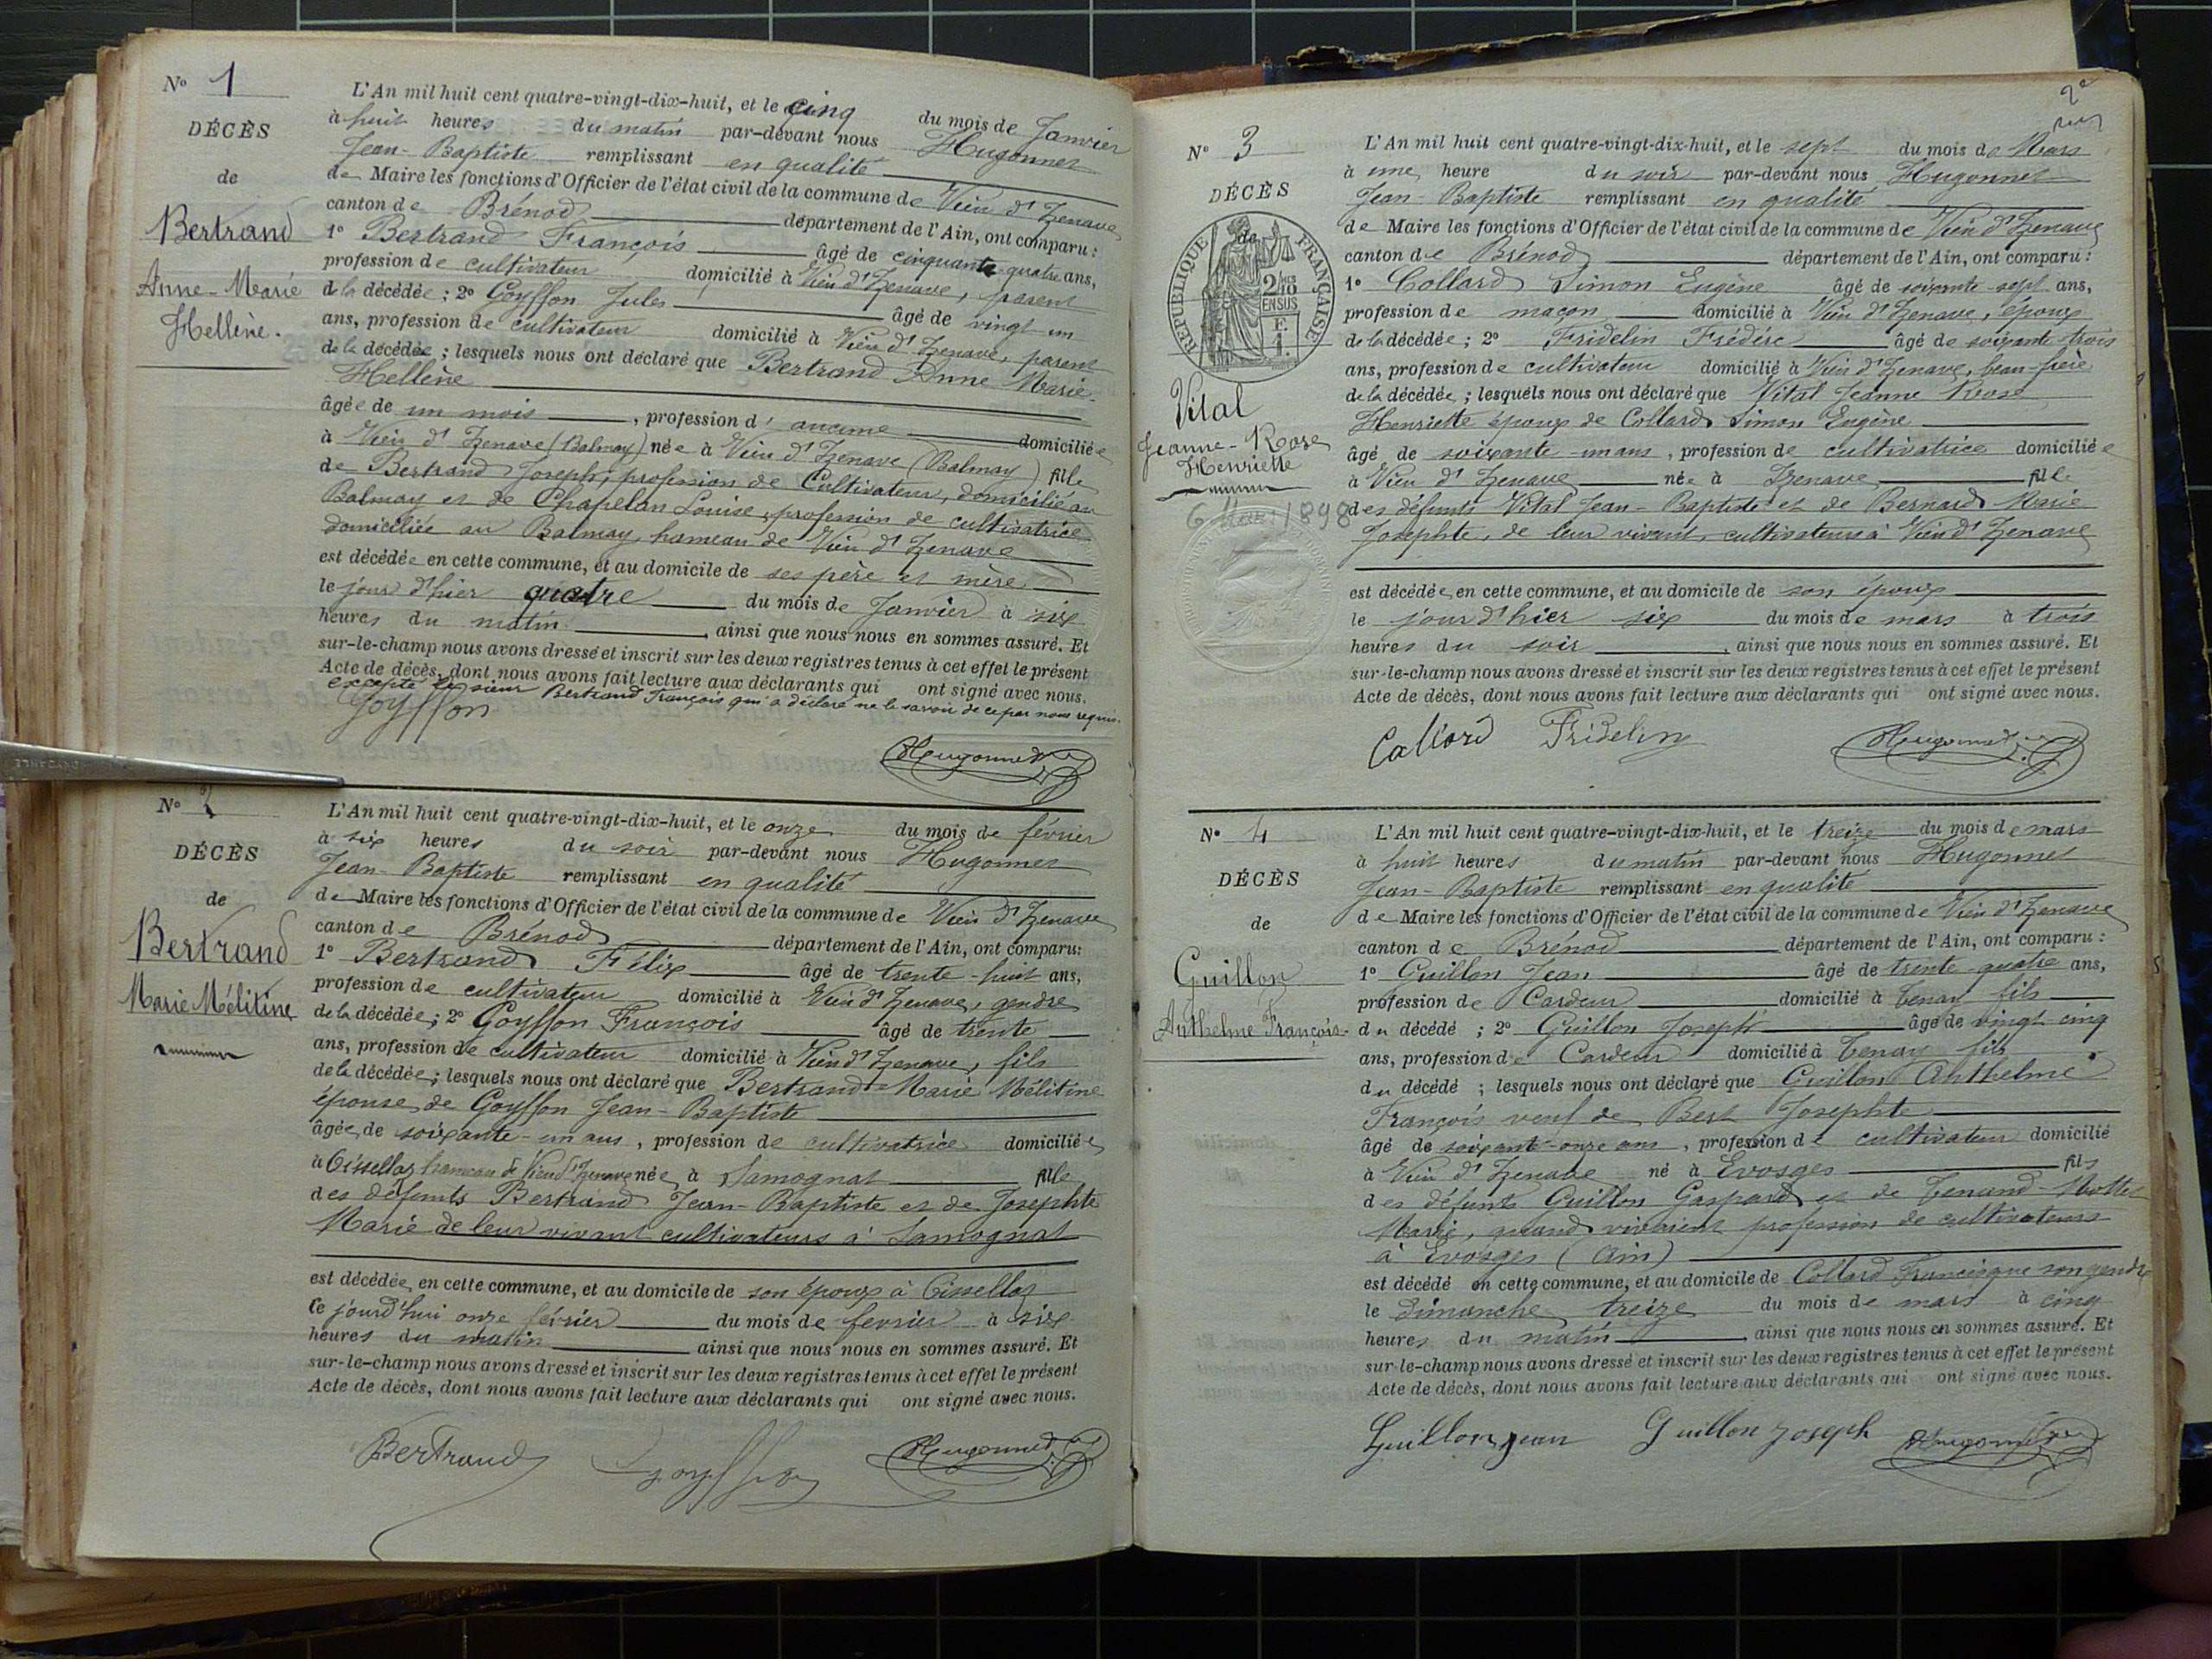 N° 1
DÉCÈS
de
Bertrand
Anne-Marie
Hellène.
L'An mil huit cent quatre-vingt-dix-huit, et le cinq du mois de Janvier
à huit heures du matin par-devant nous Hugonnet
Jean-Baptiste remplissant en qualité
de Maire les fonctions d'Officier de l'état civil de la commune de Vieu d'Izenave
canton de Brénod département de l'Ain, ont comparu :
1° Bertrand François âgé de cinquante-quatre ans,
profession de cultivateur domicilié à Vieu d'Izenave, parent
de la décédée ; 2° Goyffon Jules âgé de vingt un
ans, profession de cultivateur domicilié à Vieu d'Izenave, parent
de la décédée ; lesquels nous ont déclaré que Bertrand Anne Marie
Hellène
âgée de un mois, profession d'aucune domiciliée
à Vieu d'Izenave (Balmay) née à Vieu d'Izenave (Balmay) fille
de Bertrand Joseph, profession de Cultivateur, domicilié au
Balmay et de Chapelan Louise, profession de cultivatrice
domiciliée au Balmay, hameau de Vieu d'Izenave
est décédée en cette commune, et au domicile de ses père et mère
le jour d'hier quatre du mois de Janvier à six
heures du matin, ainsi que nous nous en sommes assuré. Et
sur-le-champ nous avons dressé et inscrit sur les deux registres tenus à cet effet le présent
Acte de décès, dont nous avons fait lecture aux déclarants qui ont signé avec nous.
excepté le sieur Bertrand François qui a déclaré ne le savoir de ce par nous requis.
Goyffon
Hugonnet
N° 2
DÉCÈS
de
Bertrand
Marie Mélitine
L'An mil huit cent quatre-vingt-dix-huit, et le onze du mois de février
à six heures du soir par-devant nous Hugonnet
Jean-Baptiste remplissant en qualité
de Maire les fonctions d'Officier de l'état civil de la commune de Vieu d'Izenave
canton de Brénod département de l'Ain, ont comparu :
1° Bertrand Félix âgé de trente-huit ans,
profession de cultivateur domicilié à Vieu d'Izenave, gendre
de la décédée ; 2° Goyffon François âgé de trente
ans, profession de cultivateur domicilié à Vieu d'Izenave, fils
de la décédée ; lesquels nous ont déclaré que Bertrand Marie Mélitine
épouse de Goyffon Jean-Baptiste
âgée de soixante-un ans, profession de cultivatrice domiciliée
à Cissellaz hameau de Vieu d'Izenave née à Samognat fille
des défunts Bertrand Jean-Baptiste et de Josephte
Marie de leur vivant cultivateurs à Samognat
est décédée en cette commune, et au domicile de son époux à Cissellaz
ce jourd'hui onze février du mois de février à six
heures du matin ainsi que nous nous en sommes assuré. Et
sur-le-champ nous avons dressé et inscrit sur les deux registres tenus à cet effet le présent
Acte de décès, dont nous avons fait lecture aux déclarants qui ont signé avec nous.
Bertrand Goyffon Hugonnet
N° 3
DÉCÈS
de
RÉPUBLIQUE FRANÇAISE
2/10 EN SUS
Vital
Jeanne-Rose
Henriette
6 Mars 1898
L'An mil huit cent quatre-vingt-dix-huit, et le sept du mois de Mars
à une heure du soir par-devant nous Hugonnet
Jean-Baptiste remplissant en qualité
de Maire les fonctions d'Officier de l'état civil de la commune de Vieu d'Izenave
canton de Brénod département de l'Ain, ont comparu :
1° Collard Simon Eugène âgé de soixante-sept ans,
profession de maçon domicilié à Vieu d'Izenave, époux
de la décédée ; 2° Fridelin Frédéric âgé de soixante-trois
ans, profession de cultivateur domicilié à Vieu d'Izenave, beau-frère
de la décédée ; lesquels nous ont déclaré que Vital Jeanne Rose
Henriette épouse de Collard Simon Eugène
âgée de soixante-un ans, profession de cultivatrice domiciliée
à Vieu d'Izenave née à Izenave fille
des défunts Vital Jean-Baptiste et de Bernard Marie
Josephte, de leur vivant cultivateurs à Vieu d'Izenave
est décédée en cette commune, et au domicile de son époux
le jour d'hier six du mois de mars à trois
heures du soir, ainsi que nous nous en sommes assuré. Et
sur-le-champ nous avons dressé et inscrit sur les deux registres tenus à cet effet le présent
Acte de décès, dont nous avons fait lecture aux déclarants qui ont signé avec nous.
Collard Fridelin Hugonnet
N° 4
DÉCÈS
de
Guillon
Anthelme François
L'An mil huit cent quatre-vingt-dix-huit, et le treize du mois de mars
à huit heures du matin par-devant nous Hugonnet
Jean-Baptiste remplissant en qualité
de Maire les fonctions d'Officier de l'état civil de la commune de Vieu d'Izenave
canton de Brénod département de l'Ain, ont comparu :
1° Guillon Jean âgé de trente-quatre ans,
profession de Cardeur domicilié à Tenay fils
du décédé ; 2° Guillon Joseph âgé de vingt cinq
ans, profession de Cardeur domicilié à Tenay fils
du décédé ; lesquels nous ont déclaré que Guillon Anthelme
François veuf de Bert Josephte
âgé de soixante-onze ans, profession de cultivateur domicilié
à Vieu d'Izenave né à Evosges fils
des défunts Guillon Gaspard et de Tenand-Mottet
Marie, quand vivaient profession de cultivateurs
à Evosges (Ain)
est décédé en cette commune, et au domicile de Collard Francisque son gendre
le dimanche treize du mois de mars à cinq
heures du matin, ainsi que nous nous en sommes assuré. Et
sur-le-champ nous avons dressé et inscrit sur les deux registres tenus à cet effet le présent
Acte de décès, dont nous avons fait lecture aux déclarants qui ont signé avec nous.
Guillon jean Guillon joseph Hugonnet